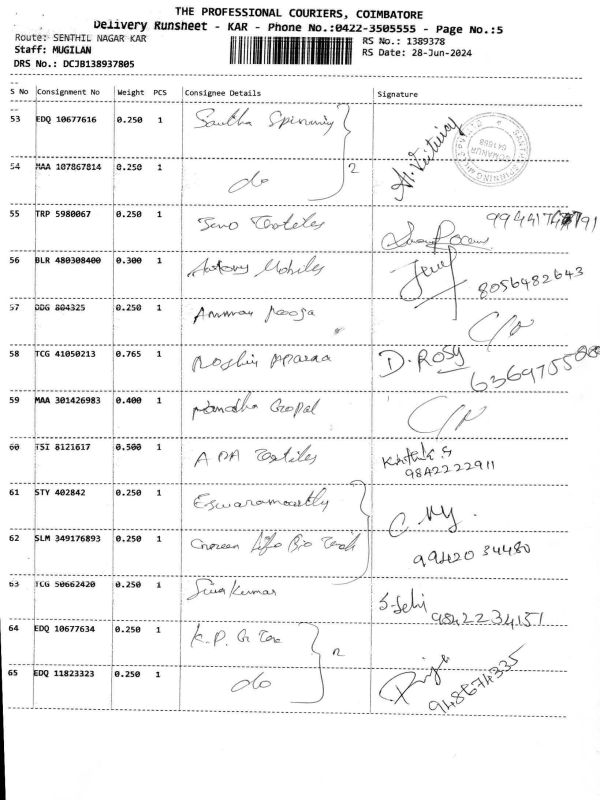 THE PROFESSIONAL COURIERS, COIMBATORE
Delivery Runsheet - KAR - Phone No.:0422-3505555 - Page No.:5
Route: SENTHIL NAGAR KAR
RS No.: 1389378
Staff: MUGILAN
RS Date: 28-Jun-2024
DRS No.: DCJB138937805
S No Consignment No Weight PCS Consignee Details Signature
53 EDQ 10677616 0.250 1 Santha Spinning
54 MAA 107867814 0.250 1 do 2
55 TRP 5980067 0.250 1 Textiles
56 BLR 480308400 0.300 1 Antony Mobiles 8056482643
57 DDG 804325 0.250 1 Amman Pooja
58 TCG 41050213 0.765 1 Roshin D. Rosy
59 MAA 301426983 0.400 1 Nandha Gopal
60 TSI 8121617 0.500 1 Textiles
9842222911
61 STY 402842 0.250 1 Eswaramoorthy
62 SLM 349176893 0.250 1 Green Life Bio Tech 99420 34480
63 TCG 50662420 0.250 1 Siva Kumar 9842234151
64 EDQ 10677634 0.250 1 K.P. 2
65 EDQ 11823323 0.250 1 do